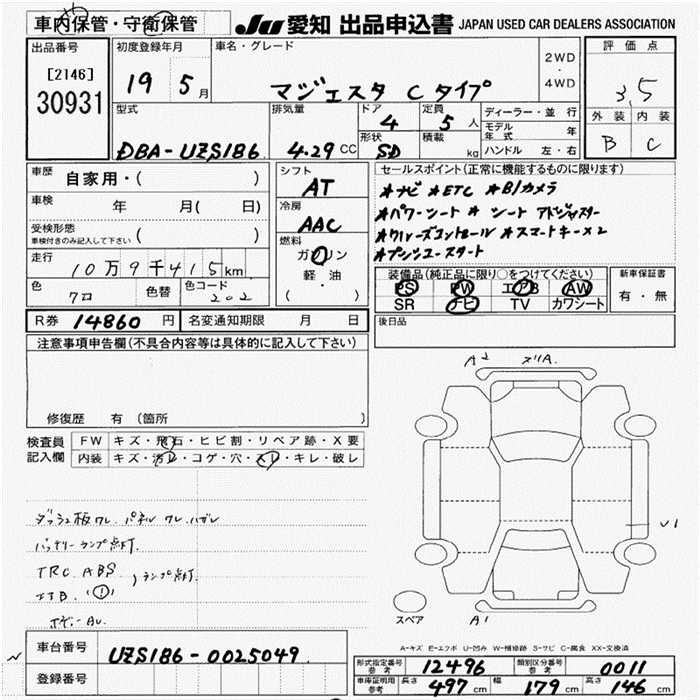 車内保管・守衛保管
JU 愛知 出品申込書 JAPAN USED CAR DEALERS ASSOCIATION
出品番号
[2146]
30931
初度登録年月
19 5月
車名・グレード
マジェスタ Cタイプ
2WD
・
4WD
評価点
3.5
外装 内装
B C
型式
DBA-UZS186
排気量
4.29 CC
ドア
4
形状
SD
定員
5人
積載
kg
ディーラー・並行
モデル年式 年
ハンドル 左・右
車歴 自家用・( )
車検 年 月( 日)
受検形態
車検付きのみ記入して下さい ( )
走行
10万9千415km
色
クロ
色替
色コード
202
シフト
AT
冷房
AAC
燃料
ガソリン
・
軽・油
( )
セールスポイント(正常に機能するものに限ります)
★ナビ ★ETC ★B/カメラ
★パワーシート ★シートアドジャスター
★クルーズコントロール ★スマートキー×2
★プッシュスタート
装備品(純正品に限り○をつけてください)
PS PW エアB AW
SR ナビ TV カワシート
新車保証書
有・無
R券 14860円
名変通知期限 月 日
後日品
注意事項申告欄(不具合内容等は具体的に記入して下さい)
修復歴 有 (箇所 )
検査員記入欄
FW キズ・飛石・ヒビ割・リペア跡・X要
内装 キズ・汚レ・コゲ・穴・スレ・キレ・破レ
ダッシュ板ワレ. パネル ワレ.ハガレ
バッテリーランプ点灯.
TRC. ABS
(!) ランプ点灯.
A2
ヌリA.
U1
A1
スペア
A-キズ E-エクボ U-凹み W-補修跡 S-サビ C-腐食 XX-交換済
車台番号 UZS186-0025049
登録番号
形式指定番号参考 12496
類別区分番号参考 0011
車庫証明用参考 長さ 497cm 幅 179cm 高さ 146cm